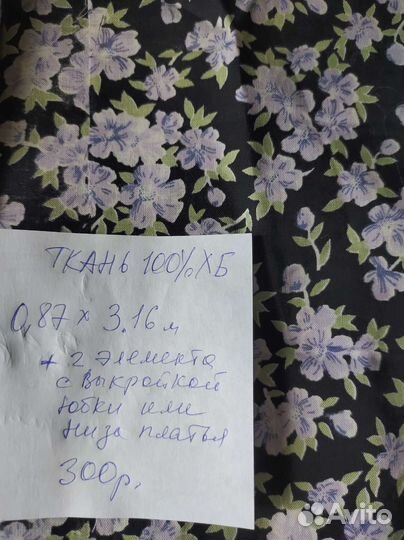 ТКАНЬ 100% ХБ
0,87 × 3.16 м
+ 2 элемента
с выкройкой
юбки или
низа платья
300р.
Avito